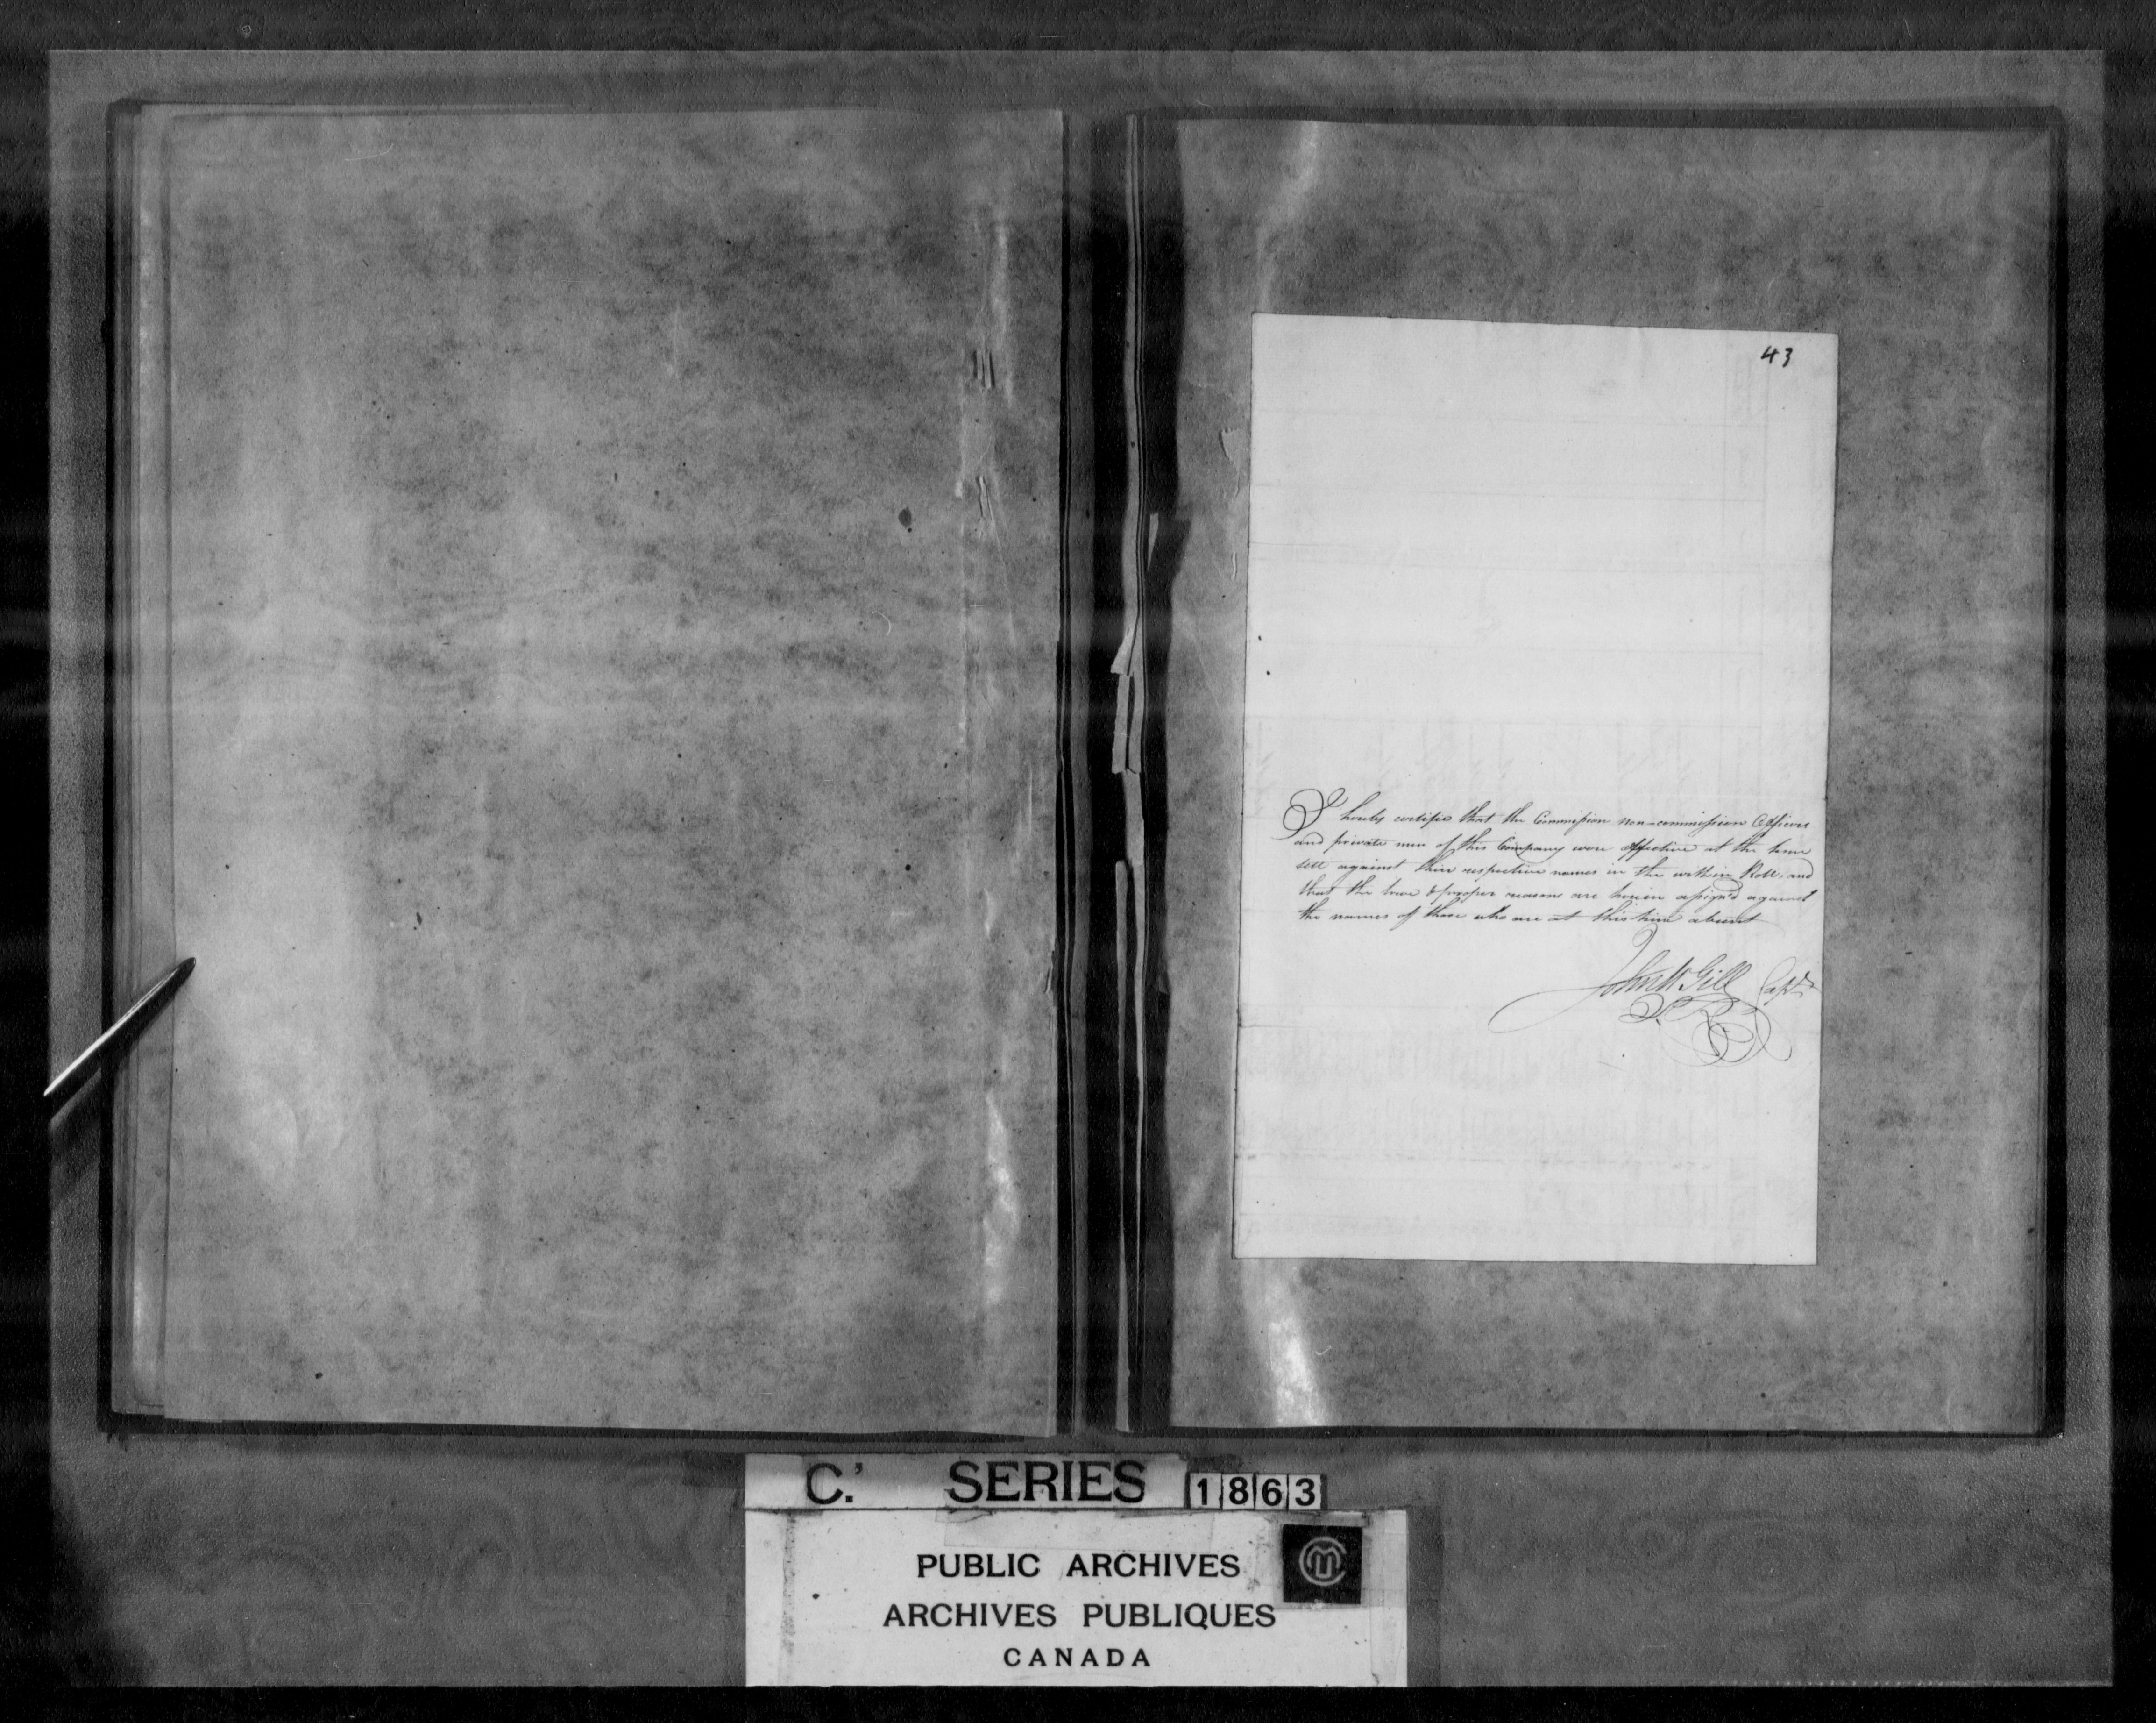 43
I hereby certifie that the Commission non-commission Officers
and private men of this Company were effective at the time
sett against their respective names in the within Roll, and
that the true & proper reasons are herein assign'd against
the names of those who are at this time absent
John McGill Capt
C. SERIES 1863
PUBLIC ARCHIVES
ARCHIVES PUBLIQUES
CANADA